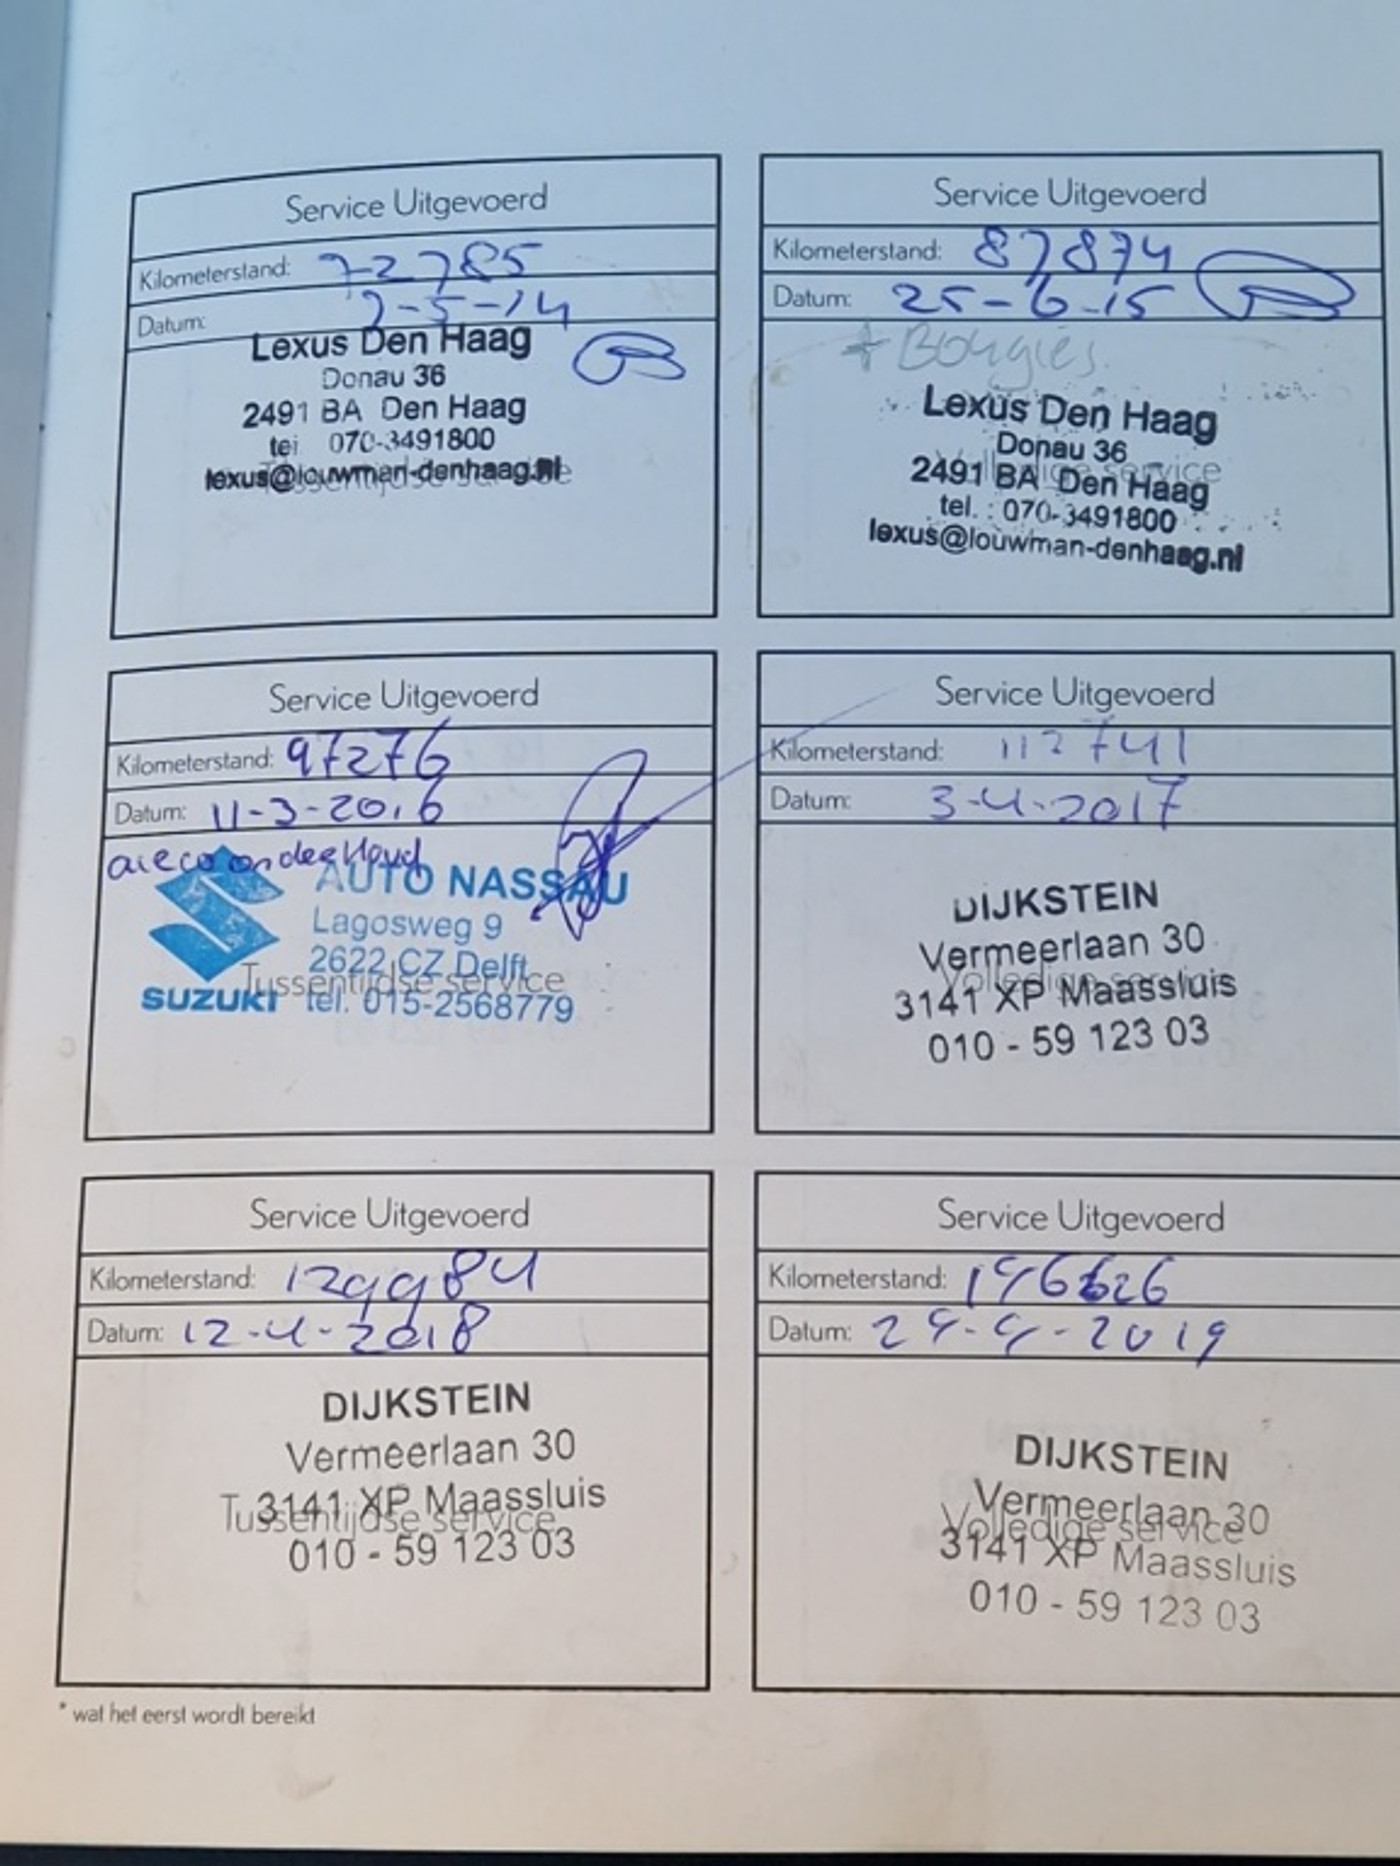 Service Uitgevoerd
Kilometerstand: 72785
Datum: 7-5-14
Lexus Den Haag
Donau 36
2491 BA Den Haag
tel 070-3491800
lexus@louwman-denhaag.nl
Tussentijdse service
Service Uitgevoerd
Kilometerstand: 87874
Datum: 25-6-15
+ Bougies.
Lexus Den Haag
Donau 36
2491 BA Den Haag
Volledige service
tel. : 070-3491800
lexus@louwman-denhaag.nl
Service Uitgevoerd
Kilometerstand: 97276
Datum: 11-3-2016
onderhoud
AUTO NASSAU
Lagosweg 9
2622 CZ Delft
Tussentijdse service
SUZUKI tel. 015-2568779
Service Uitgevoerd
Kilometerstand: 112741
Datum: 3-4-2017
DIJKSTEIN
Vermeerlaan 30
Volledige service
3141 XP Maassluis
010 - 59 123 03
Service Uitgevoerd
Kilometerstand: 129984
Datum: 12-4-2018
DIJKSTEIN
Vermeerlaan 30
3141 XP Maassluis
Tussentijdse service
010 - 59 123 03
Service Uitgevoerd
Kilometerstand: 146626
Datum: 24-4-2019
DIJKSTEIN
Vermeerlaan 30
Volledige service
3141 XP Maassluis
010 - 59 123 03
* wat het eerst wordt bereikt